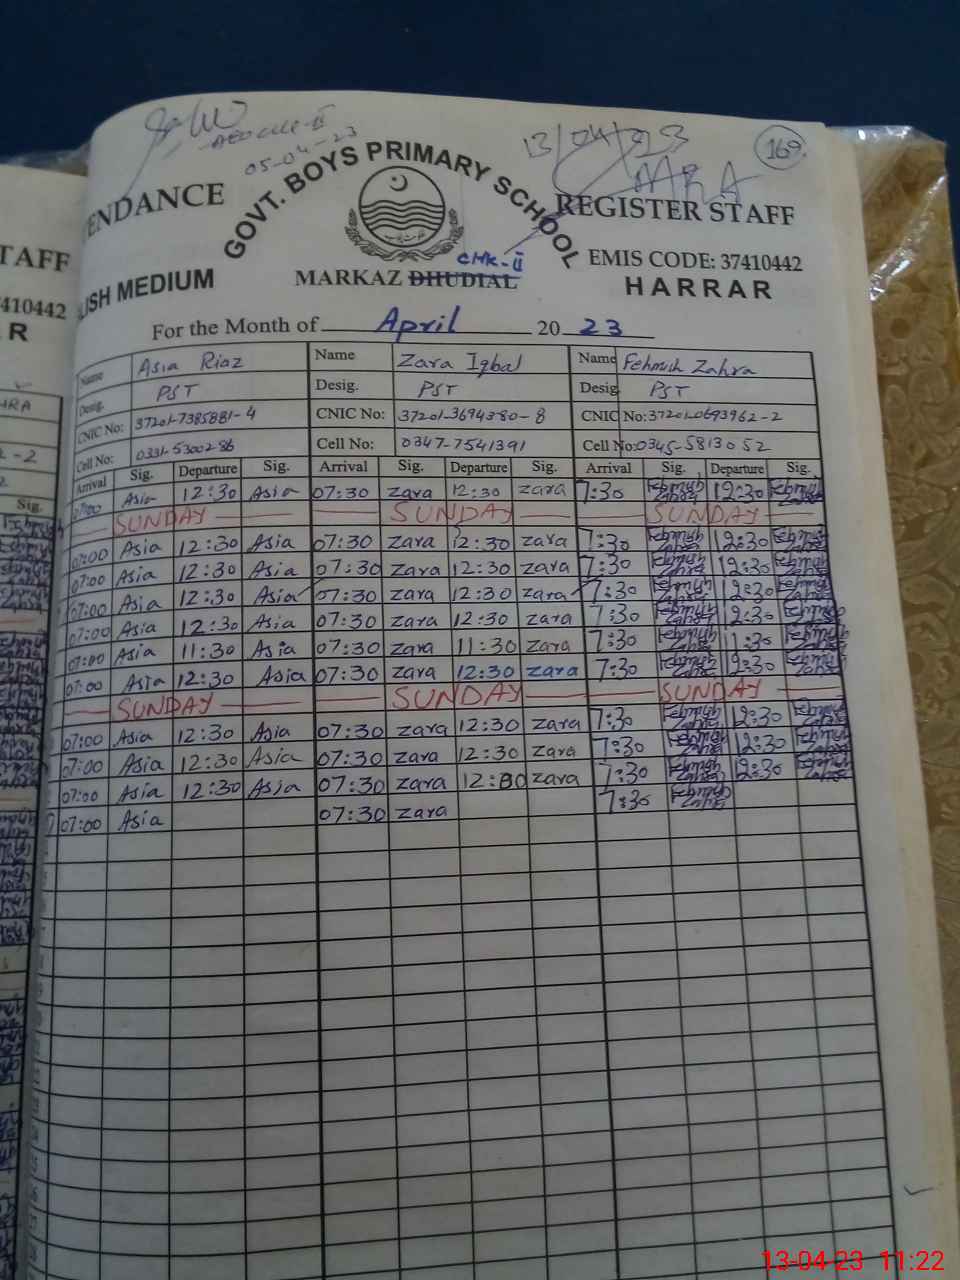 05-04-23
13/04/2023
MRA
169
ENDANCE
GOVT. BOYS PRIMARY SCHOOL
REGISTER STAFF
CMK-II
EMIS CODE: 37410442
LISH MEDIUM
MARKAZ DHUDIAL
HARRAR
For the Month of April 20 23
Name Asia Riaz Name Zara Iqbal Name Fehmish Zahra
Desig. PST Desig. PST Desig. PST
CNIC No: 37201-7385881-4 CNIC No: 37201-3694380-8 CNIC No: 37201-0693962-2
Cell No: 0331-5300286 Cell No: 0347-7541391 Cell No: 0345-5813052
Arrival Sig. Departure Sig. Arrival Sig. Departure Sig. Arrival Sig. Departure Sig.
07:00 Asia 12:30 Asia 07:30 zara 12:30 zara 7:30 12:30
SUNDAY SUNDAY SUNDAY
07:00 Asia 12:30 Asia 07:30 zara 12:30 zara 7:30 12:30
07:00 Asia 12:30 Asia 07:30 zara 12:30 zara 7:30 12:30
07:00 Asia 12:30 Asia 07:30 zara 12:30 zara 7:30 12:30
07:00 Asia 12:30 Asia 07:30 zara 12:30 zara 7:30 12:30
07:00 Asia 11:30 Asia 07:30 zara 11:30 zara 7:30 11:30
07:00 Asia 12:30 Asia 07:30 zara 12:30 zara 7:30 12:30
SUNDAY SUNDAY SUNDAY
07:00 Asia 12:30 Asia 07:30 zara 12:30 zara 7:30 12:30
07:00 Asia 12:30 Asia 07:30 zara 12:30 zara 7:30 12:30
07:00 Asia 12:30 Asia 07:30 zara 12:30 zara 7:30 12:30
07:00 Asia 07:30 zara 7:30
TAFF
410442
R
HRA
Sig.
13-04-23 11:22